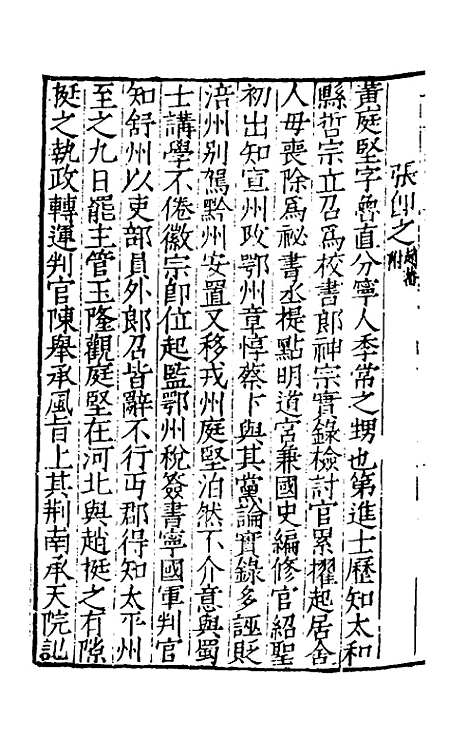 張即之附
黃庭堅字魯直分寧人李常之甥也第進士歷知太和
縣哲宗立召爲校書郎神宗實錄檢討官累擢起居舍
人母喪除爲祕書丞提點明道宮兼國史編修官紹聖
初出知宣州改鄂州章惇蔡卞與其黨論實錄多誣貶
涪州别駕黔州安置又移戎州庭堅泊然不介意與蜀
士講學不倦徽宗即位起監鄂州稅簽書寧國軍判官
知舒州以吏部員外郎召皆辭不行丐郡得知太平州
至之九日罷主管玉隆觀庭堅在河北與趙挺之有隙
挺之執政轉運判官陳舉承風旨上其荆南承天院記